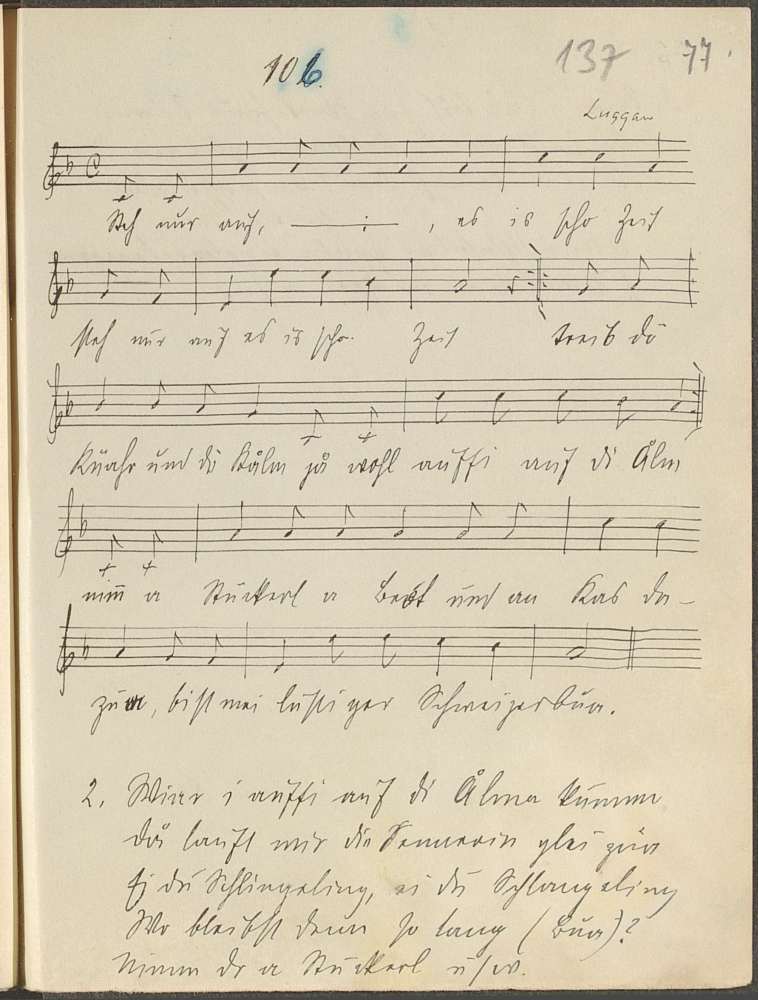 106.
137 77.
Luggau
Steh nur auf, —— : ——, es is scho Zeit
steh nur auf es is scho Zeit treib dö
Küahr und di Kålm jå wohl auffi auf di Ålm
nimm a Stückerl a Brot und an Kas da-
zua, bist mei lustiger Schweizerbua.
2. Wiar i auffi auf di Ålma kumm
då lauft mir die Sennerin glei zua
Ei du Schlingeling, ei du Schlangeling
Wo bleibst denn so lang (Bua)?
Nimm dr a Stückerl usw.